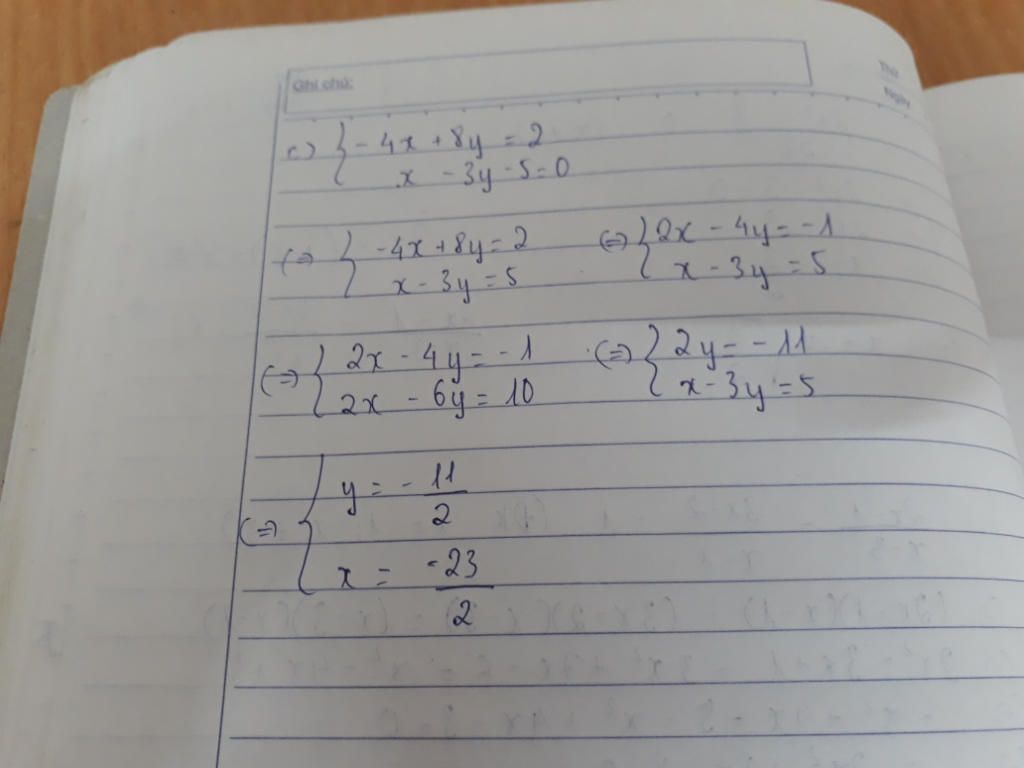 Ghi chú:
Thứ
Ngày
c) { -4x + 8y = 2
x - 3y - 5 = 0
(=) { -4x + 8y = 2 (=) { 2x - 4y = -1
x - 3y = 5 x - 3y = 5
(=) { 2x - 4y = -1 (=) { 2y = -11
2x - 6y = 10 x - 3y = 5
(=) { y = - 11/2
x = -23/2